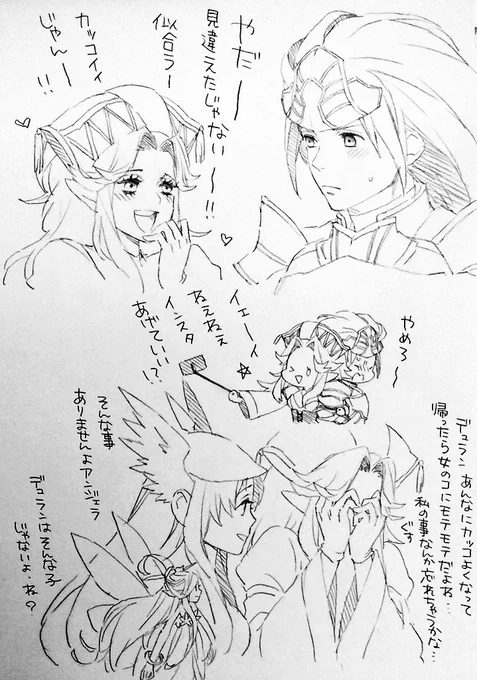 やだ〜
見違えたじゃない〜!!
似合うー
カッコイィ
じゃんー!!
イェーイ
ねえねえ
インスタ
あげていい!?
やめろ〜
デュラン あんなにカッコよくなって
帰ったら女のコにモテモテだよね…
私の事なんか忘れちゃうかな…
ぐす
そんな事
ありませんよアンジェラ
デュランはそんな子
じゃないよ．ね?